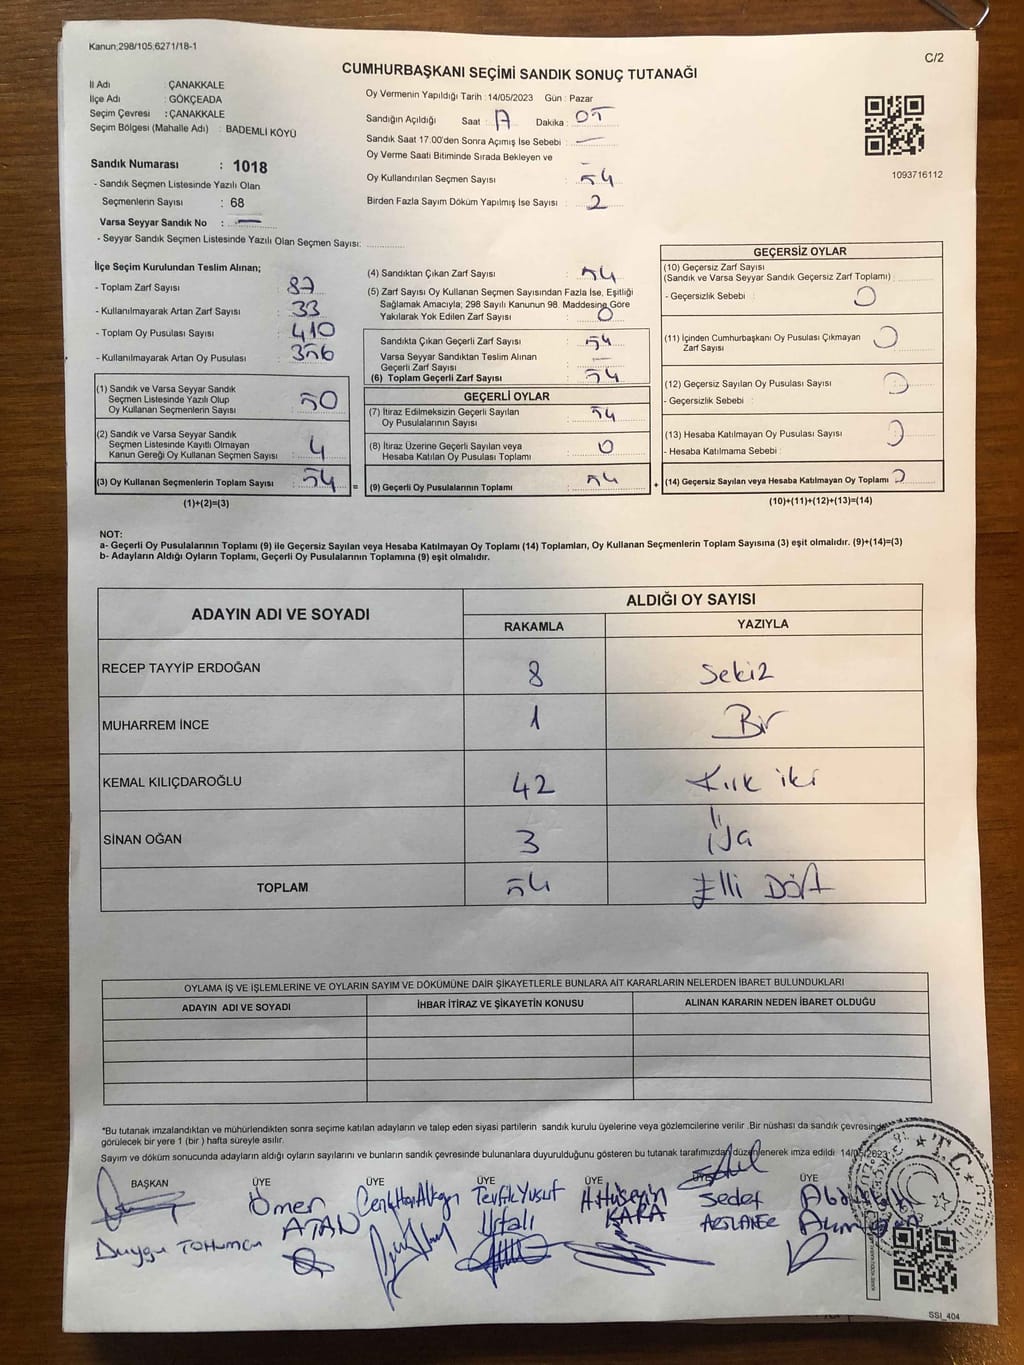 Kanun;298/105;6271/18-1
C/2
CUMHURBAŞKANI SEÇİMİ SANDIK SONUÇ TUTANAĞI
İl Adı : ÇANAKKALE
İlçe Adı : GÖKÇEADA
Seçim Çevresi : ÇANAKKALE
Seçim Bölgesi (Mahalle Adı) : BADEMLİ KÖYÜ
Oy Vermenin Yapıldığı Tarih : 14/05/2023 Gün : Pazar
Sandığın Açıldığı Saat : 17 Dakika : 05
Sandık Saat 17:00'den Sonra Açımış İse Sebebi : —
Oy Verme Saati Bitiminde Sırada Bekleyen ve –
Oy Kullandırılan Seçmen Sayısı : 54
Birden Fazla Sayım Döküm Yapılmış İse Sayısı : 2
1093716112
Sandık Numarası : 1018
- Sandık Seçmen Listesinde Yazılı Olan
Seçmenlerin Sayısı : 68
Varsa Seyyar Sandık No : —
- Seyyar Sandık Seçmen Listesinde Yazılı Olan Seçmen Sayısı:
İlçe Seçim Kurulundan Teslim Alınan;
- Toplam Zarf Sayısı : 87
- Kullanılmayarak Artan Zarf Sayısı : 33
- Toplam Oy Pusulası Sayısı : 410
- Kullanılmayarak Artan Oy Pusulası : 356
(1) Sandık ve Varsa Seyyar Sandık
Seçmen Listesinde Yazılı Olup
Oy Kullanan Seçmenlerin Sayısı : 50
(2) Sandık ve Varsa Seyyar Sandık
Seçmen Listesinde Kayıtlı Olmayan
Kanun Gereği Oy Kullanan Seçmen Sayısı : 4
(3) Oy Kullanan Seçmenlerin Toplam Sayısı : 54
(1)+(2)=(3)
(4) Sandıktan Çıkan Zarf Sayısı : 54
(5) Zarf Sayısı Oy Kullanan Seçmen Sayısından Fazla İse, Eşitliği
Sağlamak Amacıyla; 298 Sayılı Kanunun 98. Maddesine Göre
Yakılarak Yok Edilen Zarf Sayısı : 0
Sandıkta Çıkan Geçerli Zarf Sayısı : 54
Varsa Seyyar Sandıktan Teslim Alınan
Geçerli Zarf Sayısı : —
(6) Toplam Geçerli Zarf Sayısı : 54
GEÇERLİ OYLAR
(7) İtiraz Edilmeksizin Geçerli Sayılan
Oy Pusulalarının Sayısı : 54
(8) İtiraz Üzerine Geçerli Sayılan veya
Hesaba Katılan Oy Pusulası Toplamı : 0
= (9) Geçerli Oy Pusulalarının Toplamı : 54 +
GEÇERSİZ OYLAR
(10) Geçersiz Zarf Sayısı
(Sandık ve Varsa Seyyar Sandık Geçersiz Zarf Toplamı) :
- Geçersizlik Sebebi : 0
(11) İçinden Cumhurbaşkanı Oy Pusulası Çıkmayan
Zarf Sayısı : 0
(12) Geçersiz Sayılan Oy Pusulası Sayısı : 0
- Geçersizlik Sebebi :
(13) Hesaba Katılmayan Oy Pusulası Sayısı : 0
- Hesaba Katılmama Sebebi :
(14) Geçersiz Sayılan veya Hesaba Katılmayan Oy Toplamı : 0
(10)+(11)+(12)+(13)=(14)
NOT:
a- Geçerli Oy Pusulalarının Toplamı (9) ile Geçersiz Sayılan veya Hesaba Katılmayan Oy Toplamı (14) Toplamları, Oy Kullanan Seçmenlerin Toplam Sayısına (3) eşit olmalıdır. (9)+(14)=(3)
b- Adayların Aldığı Oyların Toplamı, Geçerli Oy Pusulalarının Toplamına (9) eşit olmalıdır.
ADAYIN ADI VE SOYADI ALDIĞI OY SAYISI
RAKAMLA YAZIYLA
RECEP TAYYİP ERDOĞAN 8 Sekiz
MUHARREM İNCE 1 Bir
KEMAL KILIÇDAROĞLU 42 Kırk iki
SİNAN OĞAN 3
TOPLAM 54 Elli Dört
OYLAMA İŞ VE İŞLEMLERİNE VE OYLARIN SAYIM VE DÖKÜMÜNE DAİR ŞİKAYETLERLE BUNLARA AİT KARARLARIN NELERDEN İBARET BULUNDUKLARI
ADAYIN ADI VE SOYADI İHBAR İTİRAZ VE ŞİKAYETİN KONUSU ALINAN KARARIN NEDEN İBARET OLDUĞU
*Bu tutanak imzalandıktan ve mühürlendikten sonra seçime katılan adayların ve talep eden siyasi partilerin sandık kurulu üyelerine veya gözlemcilerine verilir .Bir nüshası da sandık çevresinde
görülecek bir yere 1 (bir ) hafta süreyle asılır.
Sayım ve döküm sonucunda adayların aldığı oyların sayılarını ve bunların sandık çevresinde bulunanlara duyurulduğunu gösteren bu tutanak tarafımızdan düzenlenerek imza edildi 14/05/2023
BAŞKAN ÜYE ÜYE ÜYE ÜYE ÜYE
Duygu
Ömer
ATAN
Tevfik Yusuf
Urfalı
H. Hüseyin
KARA
Sedef
ARSLANER
T.C.
SSI_404